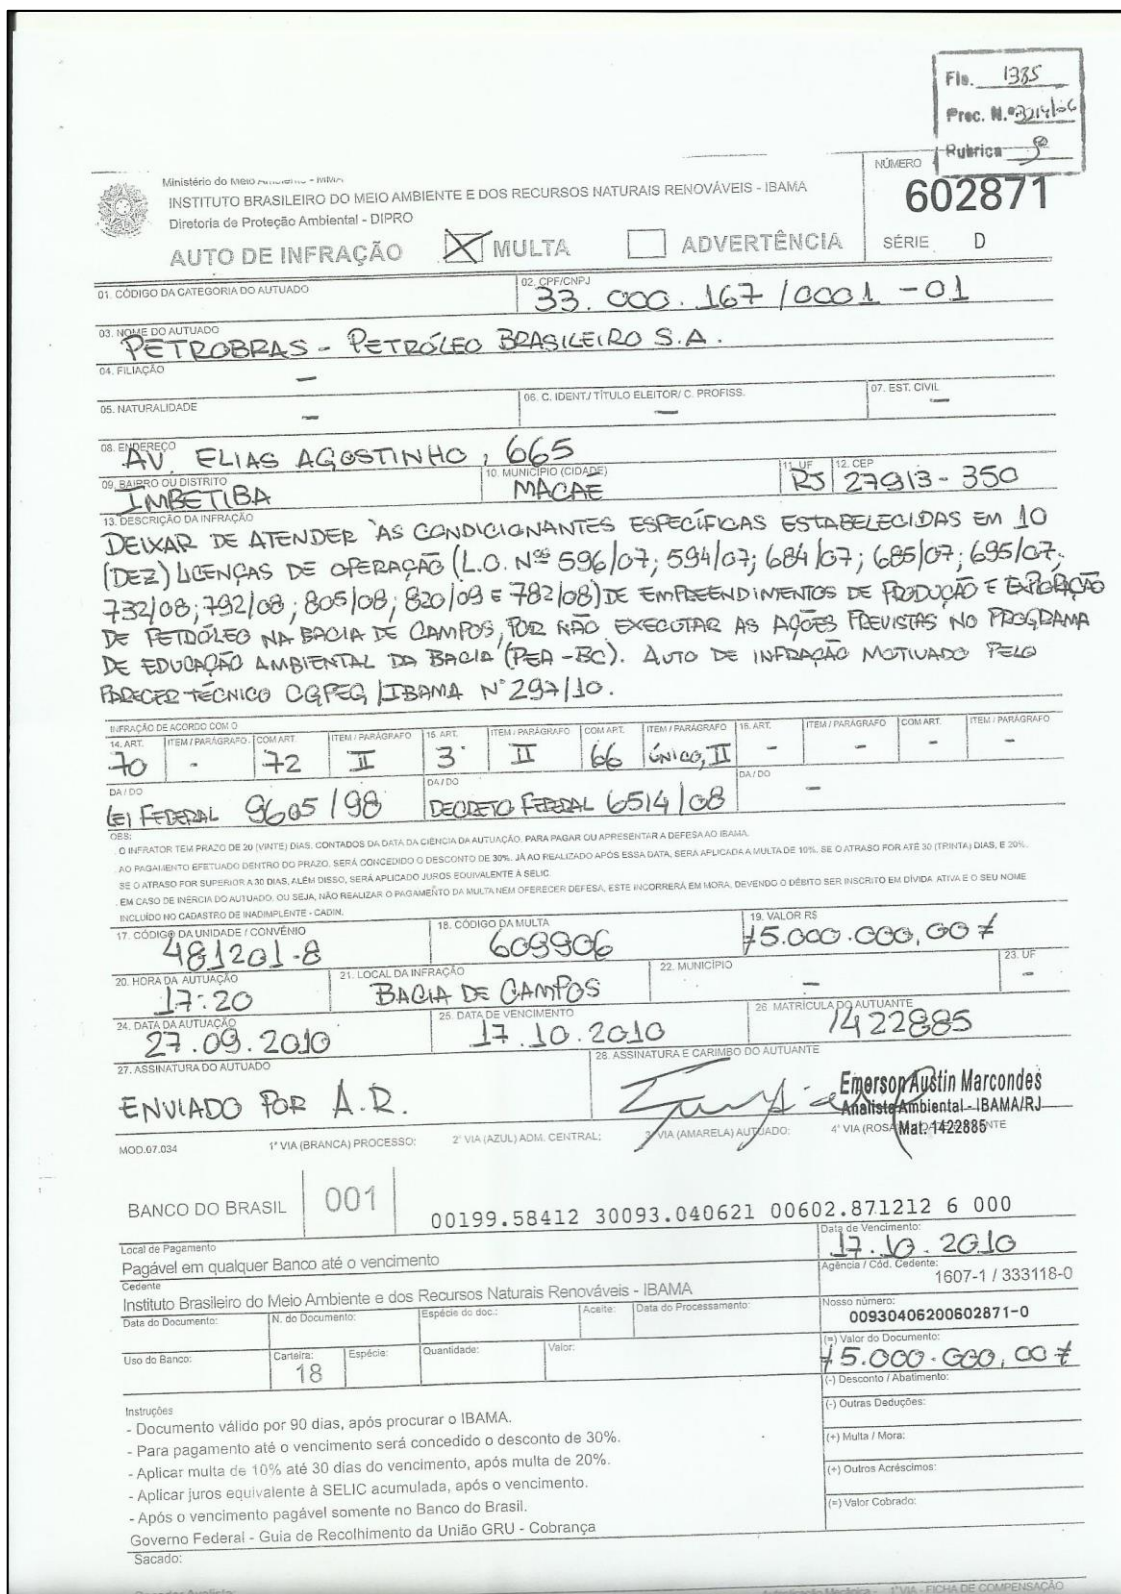 Fls. 1335
Proc. N.º 3214/06
Rubrica
Ministério do Meio
INSTITUTO BRASILEIRO DO MEIO AMBIENTE E DOS RECURSOS NATURAIS RENOVÁVEIS - IBAMA
Diretoria de Proteção Ambiental - DIPRO
NÚMERO
602871
AUTO DE INFRAÇÃO X MULTA ADVERTÊNCIA SÉRIE D
01. CÓDIGO DA CATEGORIA DO AUTUADO
02. CPF/CNPJ
33.000.167/0001-01
03. NOME DO AUTUADO
PETROBRAS - PETRÓLEO BRASILEIRO S.A.
04. FILIAÇÃO
-
05. NATURALIDADE
-
06. C. IDENT./ TÍTULO ELEITOR/ C. PROFISS.
-
07. EST. CIVIL
-
08. ENDEREÇO
AV. ELIAS AGOSTINHO, 665
09. BAIRRO OU DISTRITO
IMBETIBA
10. MUNICÍPIO (CIDADE)
MACAÉ
11. UF
RJ
12. CEP
27913-350
13. DESCRIÇÃO DA INFRAÇÃO
DEIXAR DE ATENDER ÀS CONDICIONANTES ESPECÍFICAS ESTABELECIDAS EM 10
(DEZ) LICENÇAS DE OPERAÇÃO (L.O. Nºs 596/07; 594/07; 684/07; 685/07; 695/07;
732/08; 792/08; 805/08; 820/09 E 782/08) DE EMPREENDIMENTOS DE PRODUÇÃO E EXPORAÇÃO
DE PETRÓLEO NA BACIA DE CAMPOS, POR NÃO EXECUTAR AS AÇÕES PREVISTAS NO PROGRAMA
DE EDUCAÇÃO AMBIENTAL DA BACIA (PEA-BC). AUTO DE INFRAÇÃO MOTIVADO PELO
PARECER TÉCNICO CGPEG/IBAMA N° 297/10.
INFRAÇÃO DE ACORDO COM O
14. ART. ITEM / PARÁGRAFO COM ART. ITEM / PARÁGRAFO 15. ART. ITEM / PARÁGRAFO COM ART. ITEM / PARÁGRAFO 16. ART. ITEM / PARÁGRAFO COM ART. ITEM / PARÁGRAFO
70 - 72 II 3 II 66 ÚNICO, II - - - -
DA / DO DA / DO DA / DO
LEI FEDERAL 9605/98 DECRETO FEDERAL 6514/08 -
OBS:
. O INFRATOR TEM PRAZO DE 20 (VINTE) DIAS, CONTADOS DA DATA DA CIÊNCIA DA AUTUAÇÃO, PARA PAGAR OU APRESENTAR A DEFESA AO IBAMA.
. AO PAGAMENTO EFETUADO DENTRO DO PRAZO, SERÁ CONCEDIDO O DESCONTO DE 30%. JÁ AO REALIZADO APÓS ESSA DATA, SERÁ APLICADA A MULTA DE 10%, SE O ATRASO FOR ATÉ 30 (TRINTA) DIAS, E 20%,
SE O ATRASO FOR SUPERIOR A 30 DIAS, ALÉM DISSO, SERÁ APLICADO JUROS EQUIVALENTE À SELIC.
. EM CASO DE INÉRCIA DO AUTUADO, OU SEJA, NÃO REALIZAR O PAGAMENTO DA MULTA NEM OFERECER DEFESA, ESTE INCORRERÁ EM MORA, DEVENDO O DÉBITO SER INSCRITO EM DÍVIDA ATIVA E O SEU NOME
INCLUÍDO NO CADASTRO DE INADIMPLENTE - CADIN.
17. CÓDIGO DA UNIDADE / CONVÊNIO
481201-8
18. CÓDIGO DA MULTA
609906
19. VALOR R$
5.000.000,00
20. HORA DA AUTUAÇÃO
17:20
21. LOCAL DA INFRAÇÃO
BACIA DE CAMPOS
22. MUNICÍPIO
-
23. UF
-
24. DATA DA AUTUAÇÃO
27.09.2010
25. DATA DE VENCIMENTO
17.10.2010
26. MATRÍCULA DO AUTUANTE
1422885
27. ASSINATURA DO AUTUADO
ENVIADO POR A.R.
28. ASSINATURA E CARIMBO DO AUTUANTE
Emerson Austin Marcondes
Analista Ambiental - IBAMA/RJ
Mat. 1422885
MOD.07.034 1ª VIA (BRANCA) PROCESSO: 2ª VIA (AZUL) ADM. CENTRAL; 3ª VIA (AMARELA) AUTUADO; 4ª VIA
BANCO DO BRASIL 001 00199.58412 30093.040621 00602.871212 6 000
Local de Pagamento
Pagável em qualquer Banco até o vencimento
Data de Vencimento:
17.10.2010
Cedente
Instituto Brasileiro do Meio Ambiente e dos Recursos Naturais Renováveis - IBAMA
Agência / Cód. Cedente:
1607-1 / 333118-0
Data do Documento: N. do Documento: Espécie do doc.: Aceite: Data do Processamento:
Nosso número:
00930406200602871-0
Uso do Banco: Carteira: Espécie: Quantidade: Valor:
18
(=) Valor do Documento:
5.000.000,00
(-) Desconto / Abatimento:
(-) Outras Deduções:
(+) Multa / Mora:
(+) Outros Acréscimos:
(=) Valor Cobrado:
Instruções
- Documento válido por 90 dias, após procurar o IBAMA.
- Para pagamento até o vencimento será concedido o desconto de 30%.
- Aplicar multa de 10% até 30 dias do vencimento, após multa de 20%.
- Aplicar juros equivalente à SELIC acumulada, após o vencimento.
- Após o vencimento pagável somente no Banco do Brasil.
Governo Federal - Guia de Recolhimento da União GRU - Cobrança
Sacado:
1ª VIA - FICHA DE COMPENSAÇÃO